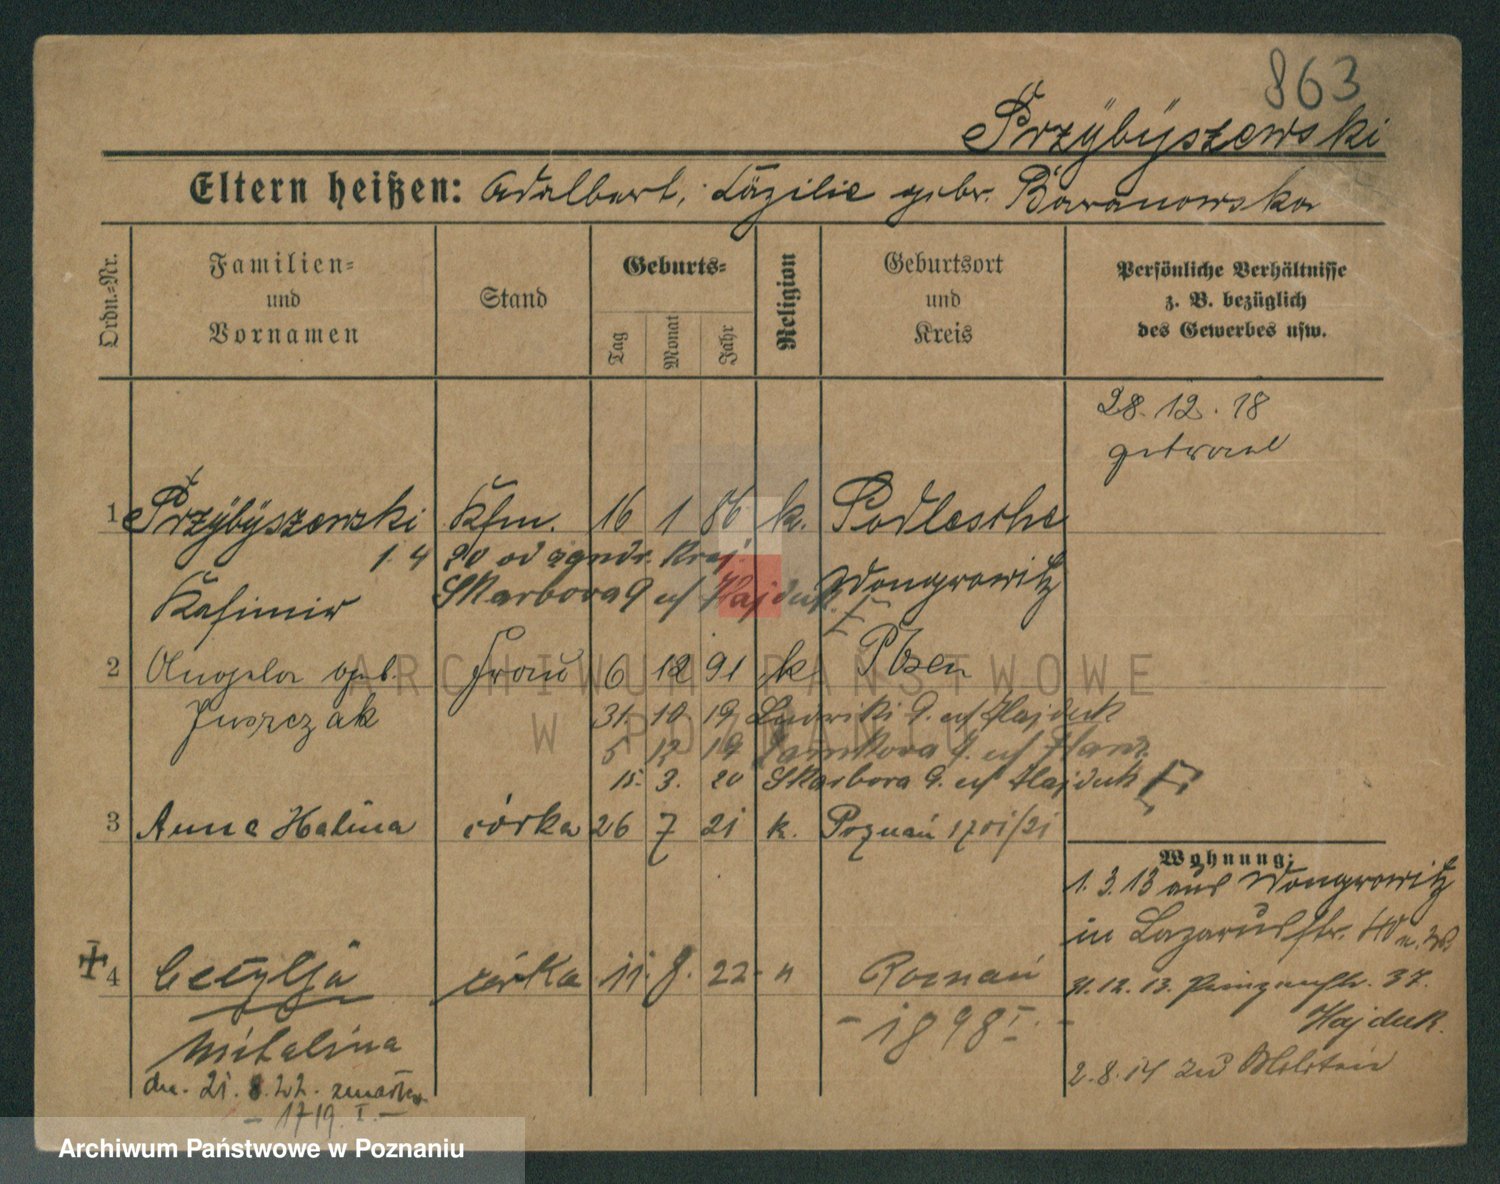 863
Przÿbÿszewski
Eltern heißen: Adalbert, Cäzilie gebr. Baranowska
Ordn.-Nr.
Familien-
und
Vornamen
Stand
Geburts-
Tag
Monat
Jahr
Religion
Geburtsort
und
Kreis
Persönliche Verhältnisse
z. B. bezüglich
des Gewerbes usw.
28. 12. 18
getraut
1 Przÿbÿszewski Kfm. 16 1 86 k. Podlesche
1. 4 20 od
Kasimir Skarbowa 9 Hajduk Wongrowitz
2 Angela geb. Frau 6 12 91 k Posen
Juszczak
31. 10 19 9. Hajduk
5 12 19
15. 3. 20 Skarbowa 9. Hajduk
3 Anna Halina córka 26 7 21 k. Poznań 1701/21
Wohnung:
1. 3. 13 aus Wongrowitz
in Lazarusstr.
4 Cecylja córka 11. 8. 22 " Poznań
31. 12. 13. 37.
- 1898 I. -
Hajduk.
Mitalina
2. 8. 14 zum Militair
dn. 21. 8. 22. zmarła
- 1719. I. -
ARCHIWUM PAŃSTWOWE
W POZNANIU
Archiwum Państwowe w Poznaniu